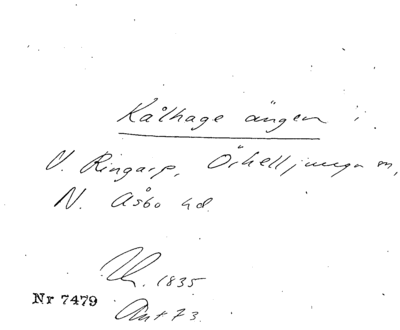 Kålhage ängen i
V. Ringarp, Örkelljunga sn,
N. Åsbo hd.
1835
Nr 7479
Ant 73.